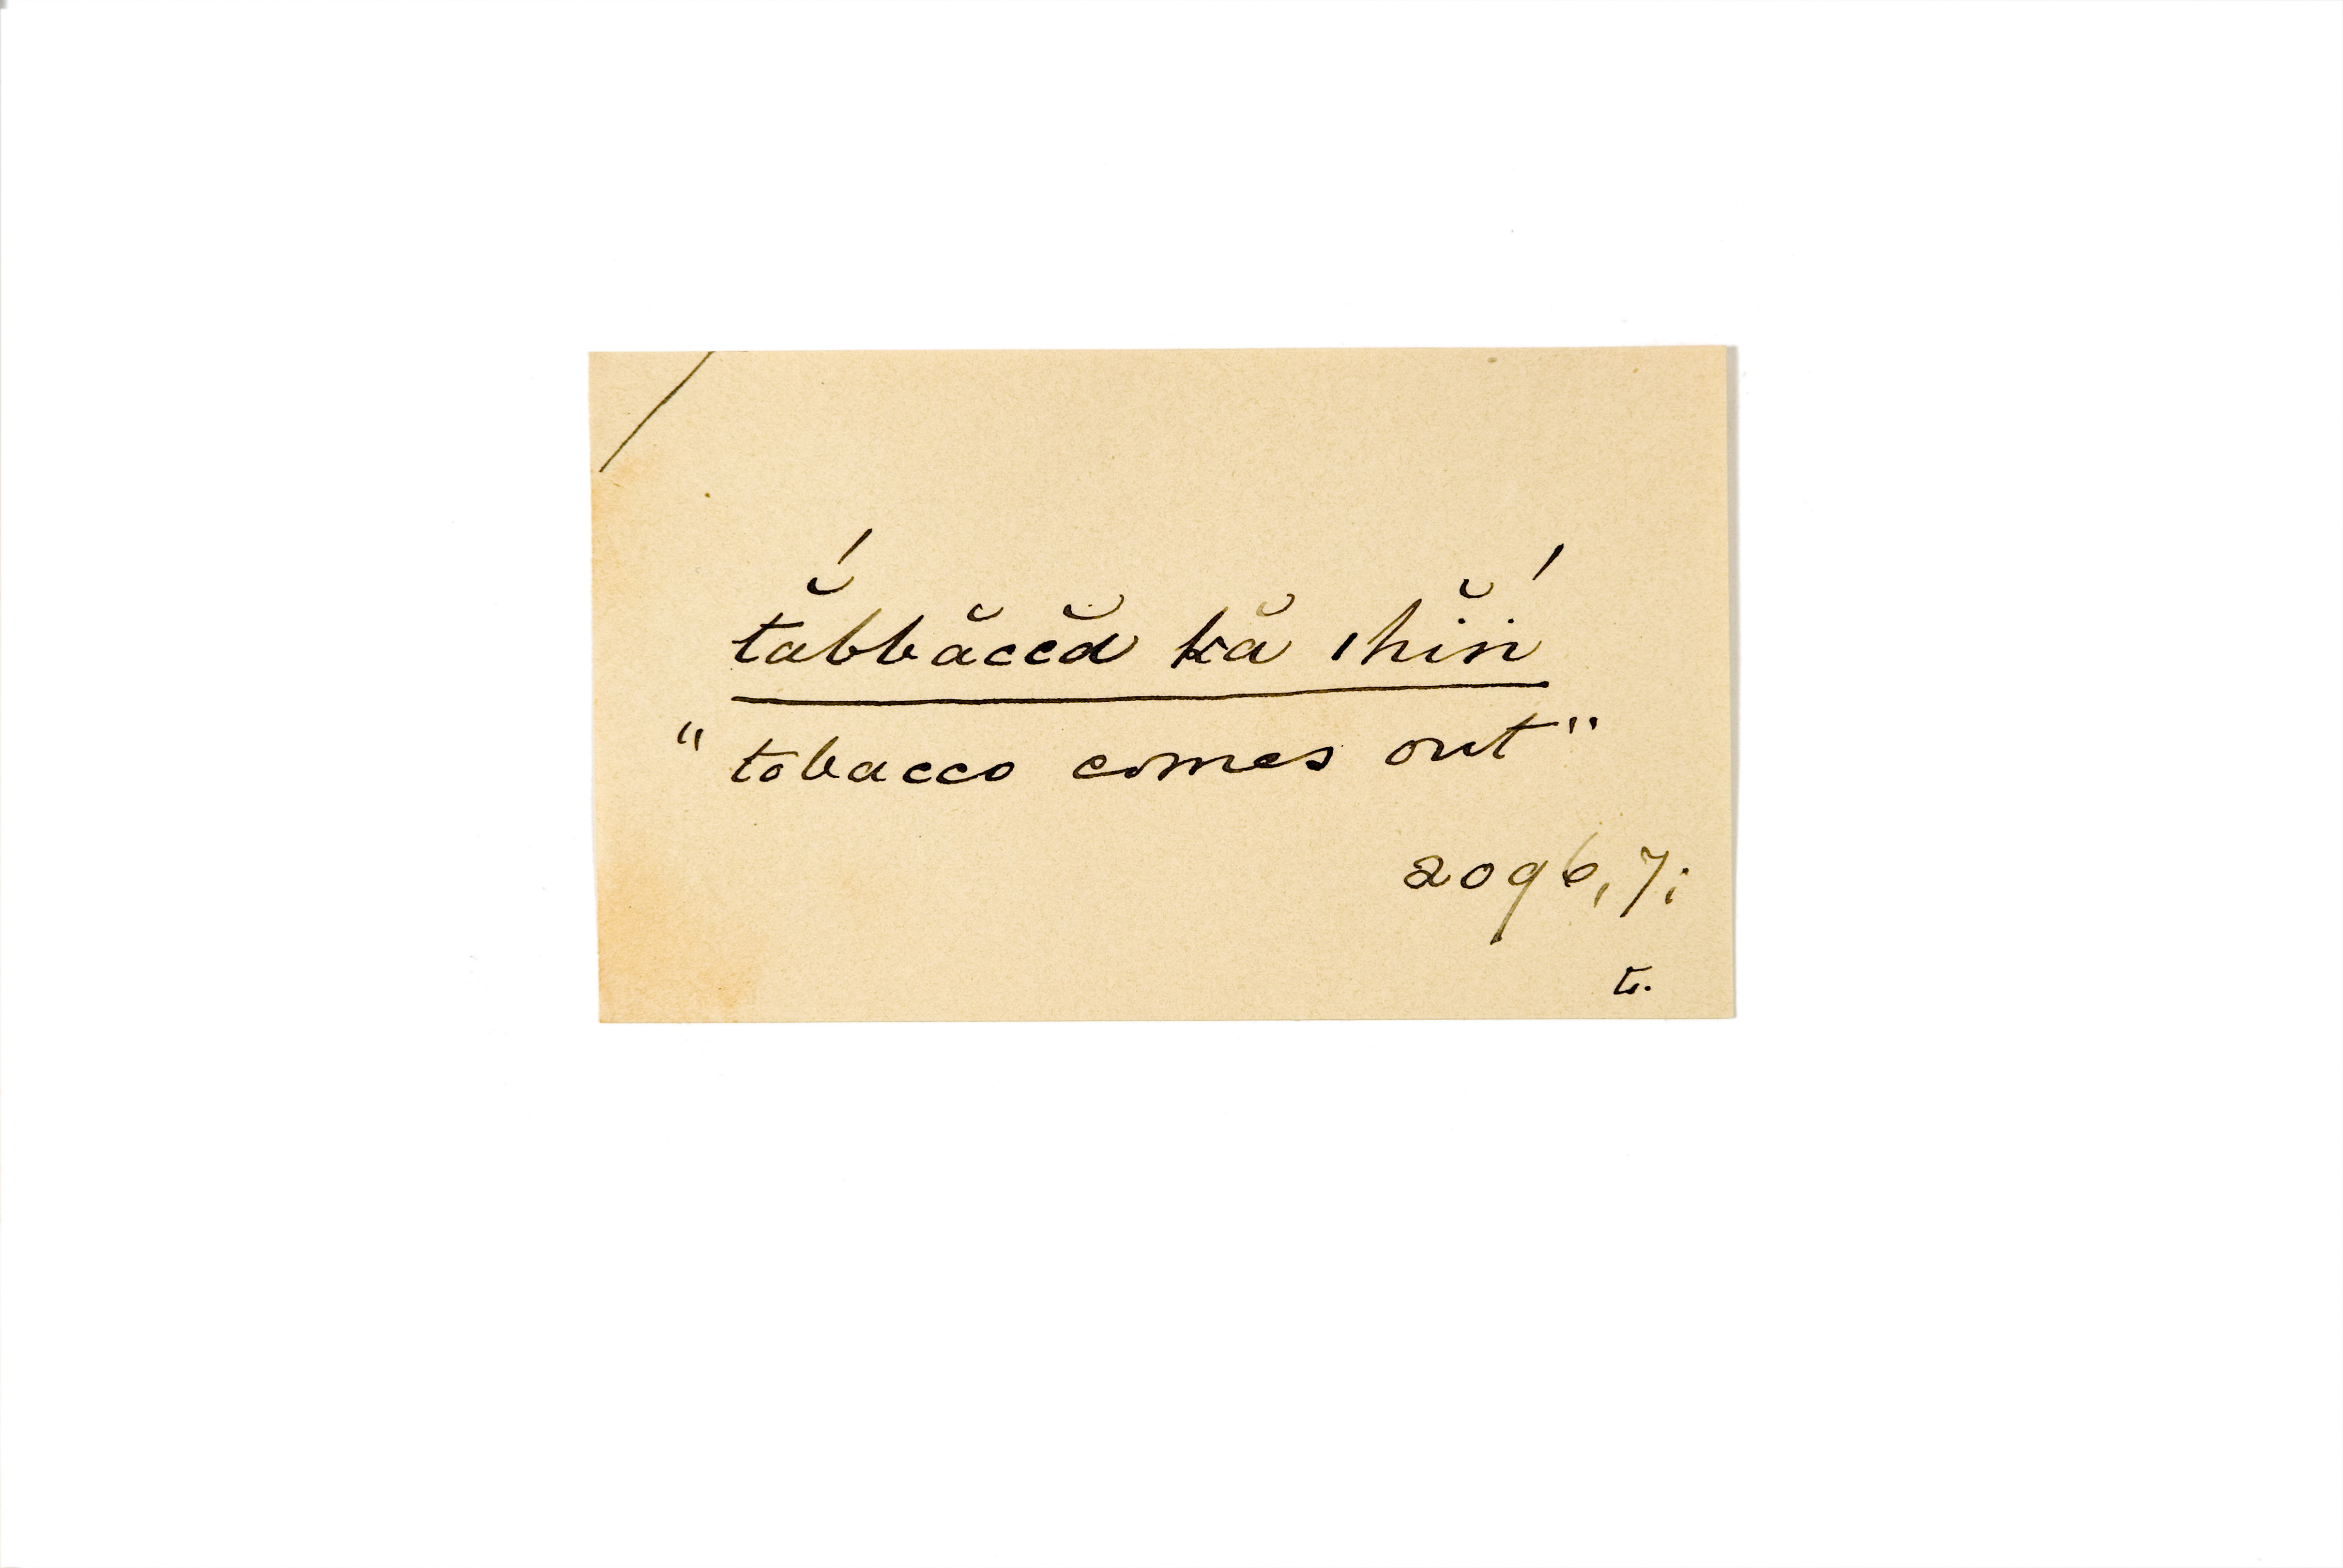 tăbbăccă kă ıhĭn
"tobacco comes out"
2096,7;
t.